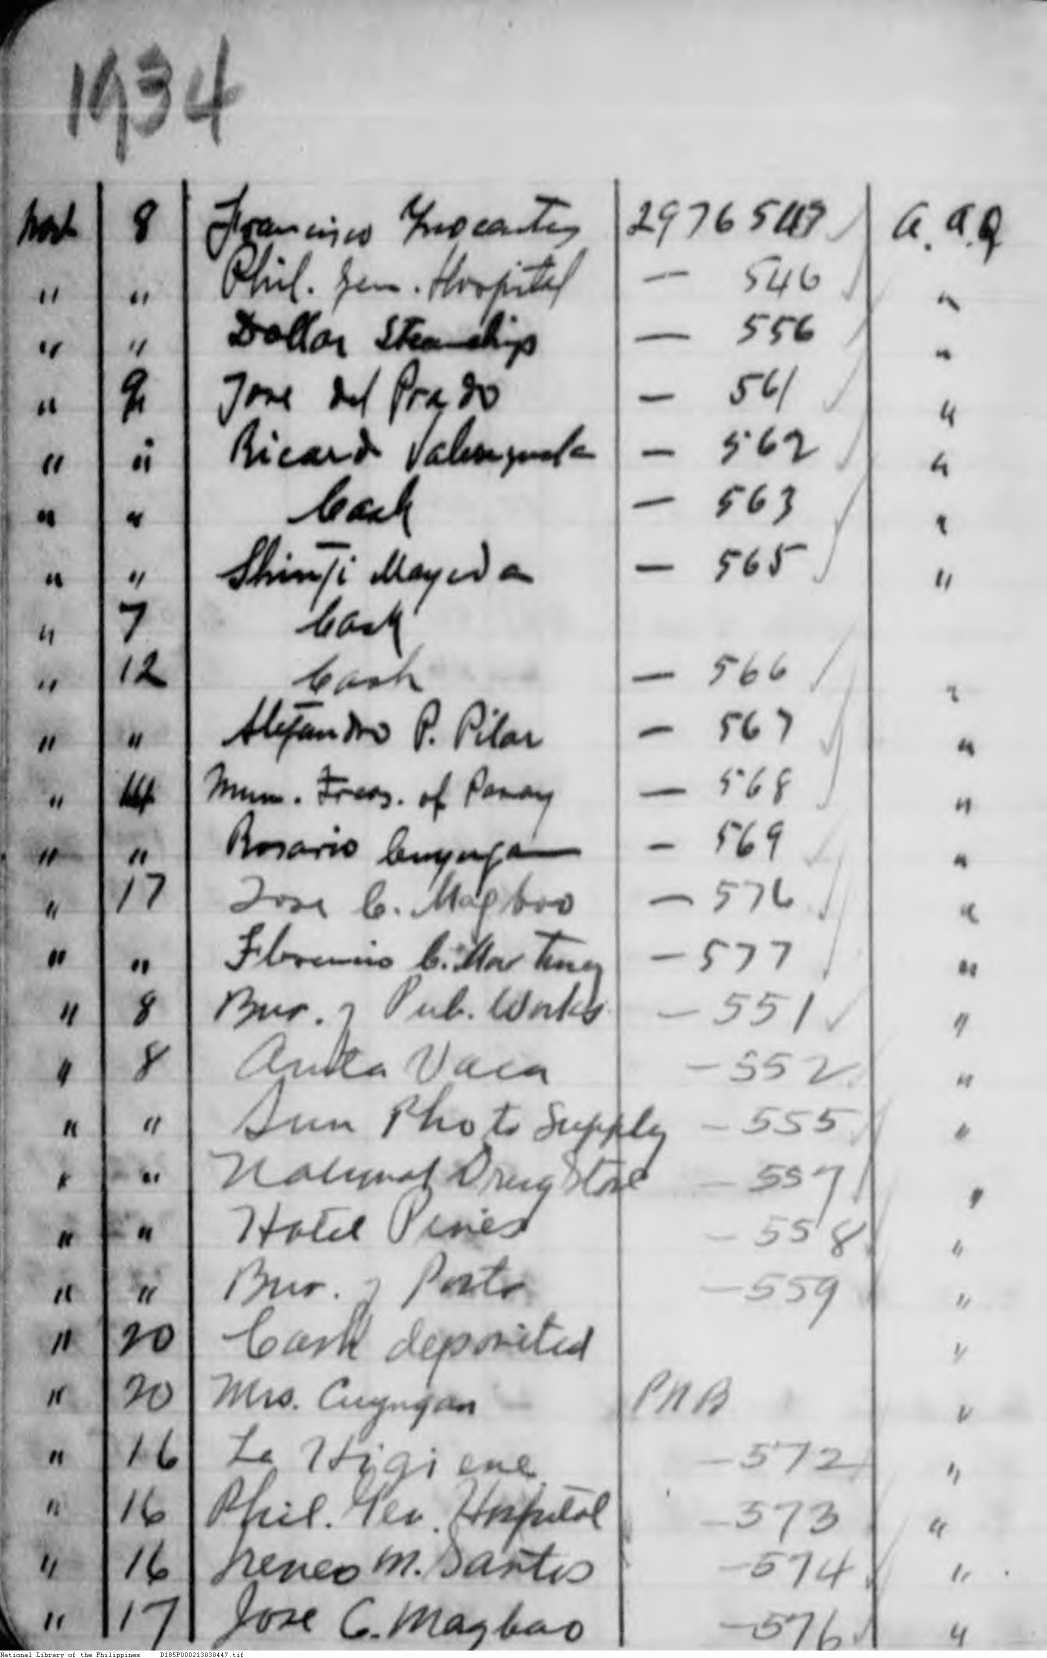 1934
8 Francisco Inocentes 29765 ✓ A. A. Q
" " Phil. Gen. Hospital — 546 ✓ "
" " Dollar Steamships — 556 ✓ "
" 9 Jose del Prado — 561 ✓ "
" " Ricardo Valenzuela — 562 ✓ "
" " Cash — 563 ✓ "
" " Shinji Mayeda — 565 ✓ "
" 7 Cash
" 12 Cash — 566 ✓ "
" " Alejandro P. Pilar — 567 ✓ "
" 14 Mun. Treas. of Panay — 568 ✓ "
" " Rosario Cuyugan — 569 ✓ "
" 17 Jose C. Magboo — 576 ✓ "
" " Florencio C. Martinez — 577 ✓ "
" 8 Bur. of Pub. Works — 551 ✓ "
" 8 Anita Vaca — 552 ✓ "
" " Sun Photo Supply — 555 ✓ "
" " National Drug Store — 557 ✓ "
" " Hotel Pines — 558 ✓ "
" " Bur. of Posts — 559 ✓ "
" 20 Cash deposited "
" 20 Mrs. Cuyugan PNB "
" 16 La Higiene — 572 ✓ "
" 16 Phil. Gen. Hospital — 573 "
" 16 Ireneo M. Santos — 574 ✓ "
" 17 Jose C. Magbao — 576 ✓ "
National Library of the Philippines D185P000213838447.tif